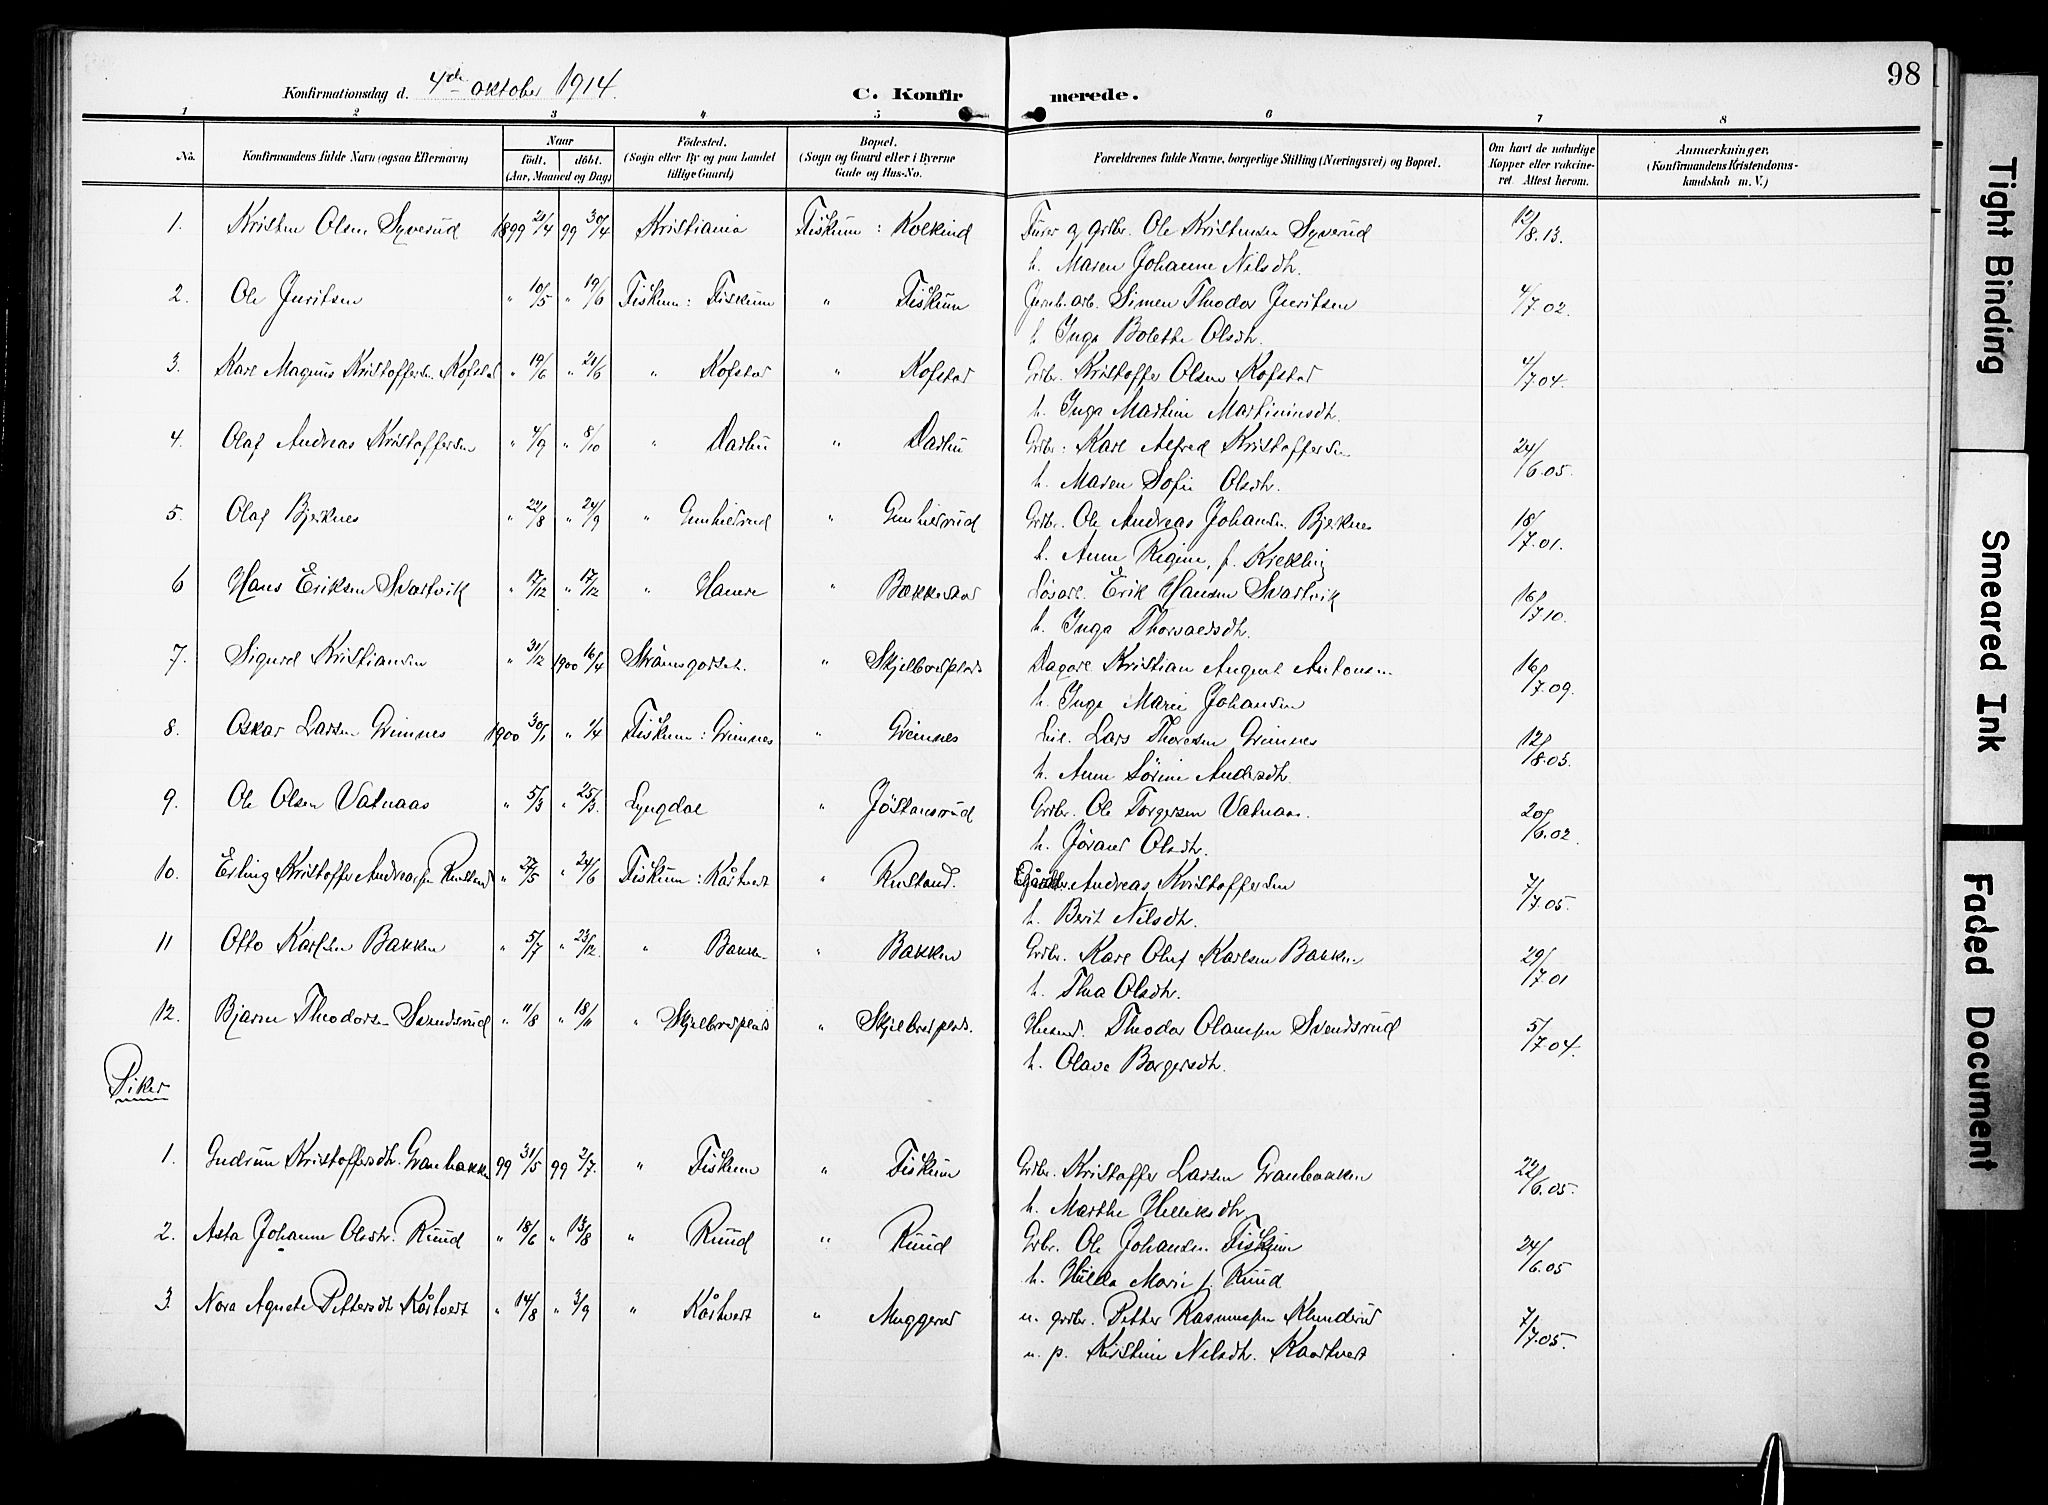 98
Konfirmationsdag d. 4de oktober 1914.
C. Konfirmerede.
1 2 3 4 5 6 7 8
No. Konfirmandens fulde Navn (ogsaa Efternavn) Naar födt. döbt. (Aar, Maaned og Dag) Födested. (Sogn eller By og paa Landet tillige Gaard) Bopæl. (Sogn og Gaard eller i Byerne Gade og Hus-No. Forældrenes fulde Navne, borgerlige Stilling (Næringsvei) og Bopæl. Om havt de naturlige Kopper eller vakcineret. Attest herom. Anmerkninger, (Konfirmandens Kristendomskundskab m. V.)
1. Kristen Olsen Syverud 1899 21/4 99 30/4 Kristiania Fiskum : Kolkind Furer og grdbr. Ole Kristensen Syverud 12/8.13.
h. Maren Johanne Nilsdtr.
2. Ole Juritsen " 10/5 " 19/6 Fiskum : Fiskum " Fiskum Jernb.arb. Simen Theodor Juritsen 4/7.02.
h. Inga Bolette Olsdtr.
3. Karl Magnus Kristoffersen Kofstad " 19/6 " 21/6 " Kofstad " Kofstad Grdbr. Kristoffer Olsen Kofstad 4/7.04.
h. Inga Martine Martininsdtr.
4. Olaf Andreas Kristoffersen " 4/9 " 8/10 " Darbu " Darbu Grdbr. Karl Alfred Kristoffersen 24/6.05.
h. Maren Sofie Olsdtr.
5. Olaf Bjerknes " 22/8 " 24/9 " Gunhildrud " Gunhildrud Grdbr. Ole Andreas Johansen Bjerknes 18/7.01.
h. Anne Regine, f. Krekling
6 Hans Eriksen Svartvik " 17/12 " 17/12 " Hanere " Bækkestad Løsarb. Erik Hansen Svartvik 16/7 10.
h. Inga Thorvaldsdtr.
7. Sigurd Kristiansen " 31/12 1900 16/4 Strömsgodset. " Skjelbredplads Dagarb. Kristian August Antonsen 16/7.09.
h. Inga Marie Johansen
8. Oskar Larsen Grimnes 1900 30/1 " 1/4 Fiskum : Grimnes " Greimnes Leil. Lars Thoresen Grimnes 12/8.05.
h. Anne Sörine Andersdtr.
9. Ole Olsen Vatnaas " 5/3 " 25/3. Lyngdal " Jöstansrud Grdbr. Ole Torgersen Vatnaas. 20/6.02.
h. Jörand Olsdtr.
10. Erling Kristoffer Andreassen Rustand " 27/5 " 24/6 Fiskum : Kåstvedt " Rustand. Andreas Kristoffersen 7/7.05.
h. Berit Nilsdtr.
11 Otto Karlsen Bakken " 5/7 " 23/12. " Bakken " Bakken Grdbr. Karl Oluf Karlsen Bakken 29/7.01
h. Thea Olsdtr.
12. Bjarne Theodorsen Svendsrud " 11/8 " 18/11 " Skjelbredplads " Skjelbredplads. Husmd. Theodor Olaussen Svendsrud 5/7.04.
h. Olave Borgersdtr.
Piker
1. Gudrun Kristoffersdtr. Granbakken 99 31/5 99 2/7. " Fiskum " Fiskum Grdbr. Kristoffer Larsen Granbakken 22/6.05.
h. Marthe Helliksdtr.
2. Asta Johanne Olsdtr. Ruud " 18/6 " 13/8 " Ruud " Ruud Grbr. Ole Johansen Fiskum 24/6.05
h. Hilda Marie f. Ruud
3. Nora Agnete Pettersdtr. Kåstvedt " 14/8 " 3/9 " Kåstvedt " Muggerud u. grdbr. Petter Rasmussen Klunderud 7/7.05.
u. p. Kirstine Nilsdtr. Kaastvedt
Tight Binding
Smeared Ink
Faded Document